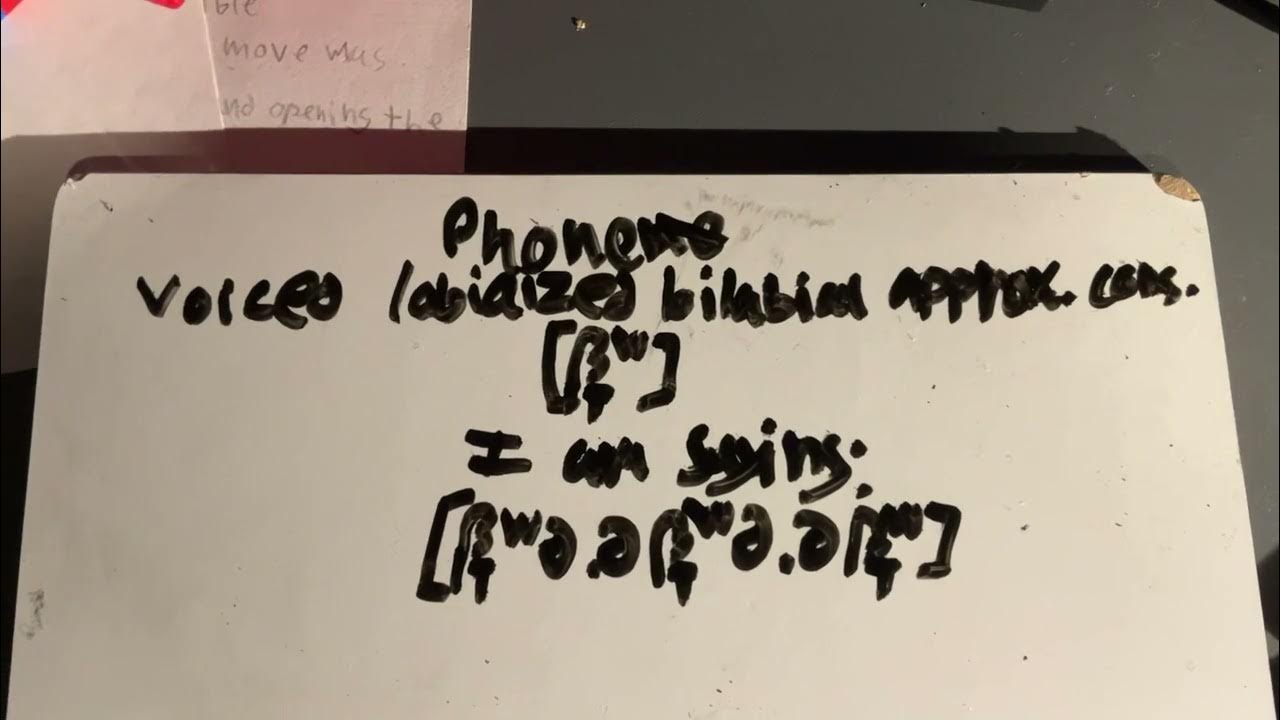 ble
move was
nd opening the
Phoneme
Voiced labialized bilabial approx. cons.
[β̞ʷ]
I am saying:
[β̞ʷə.əβ̞ʷə.əβ̞ʷ]